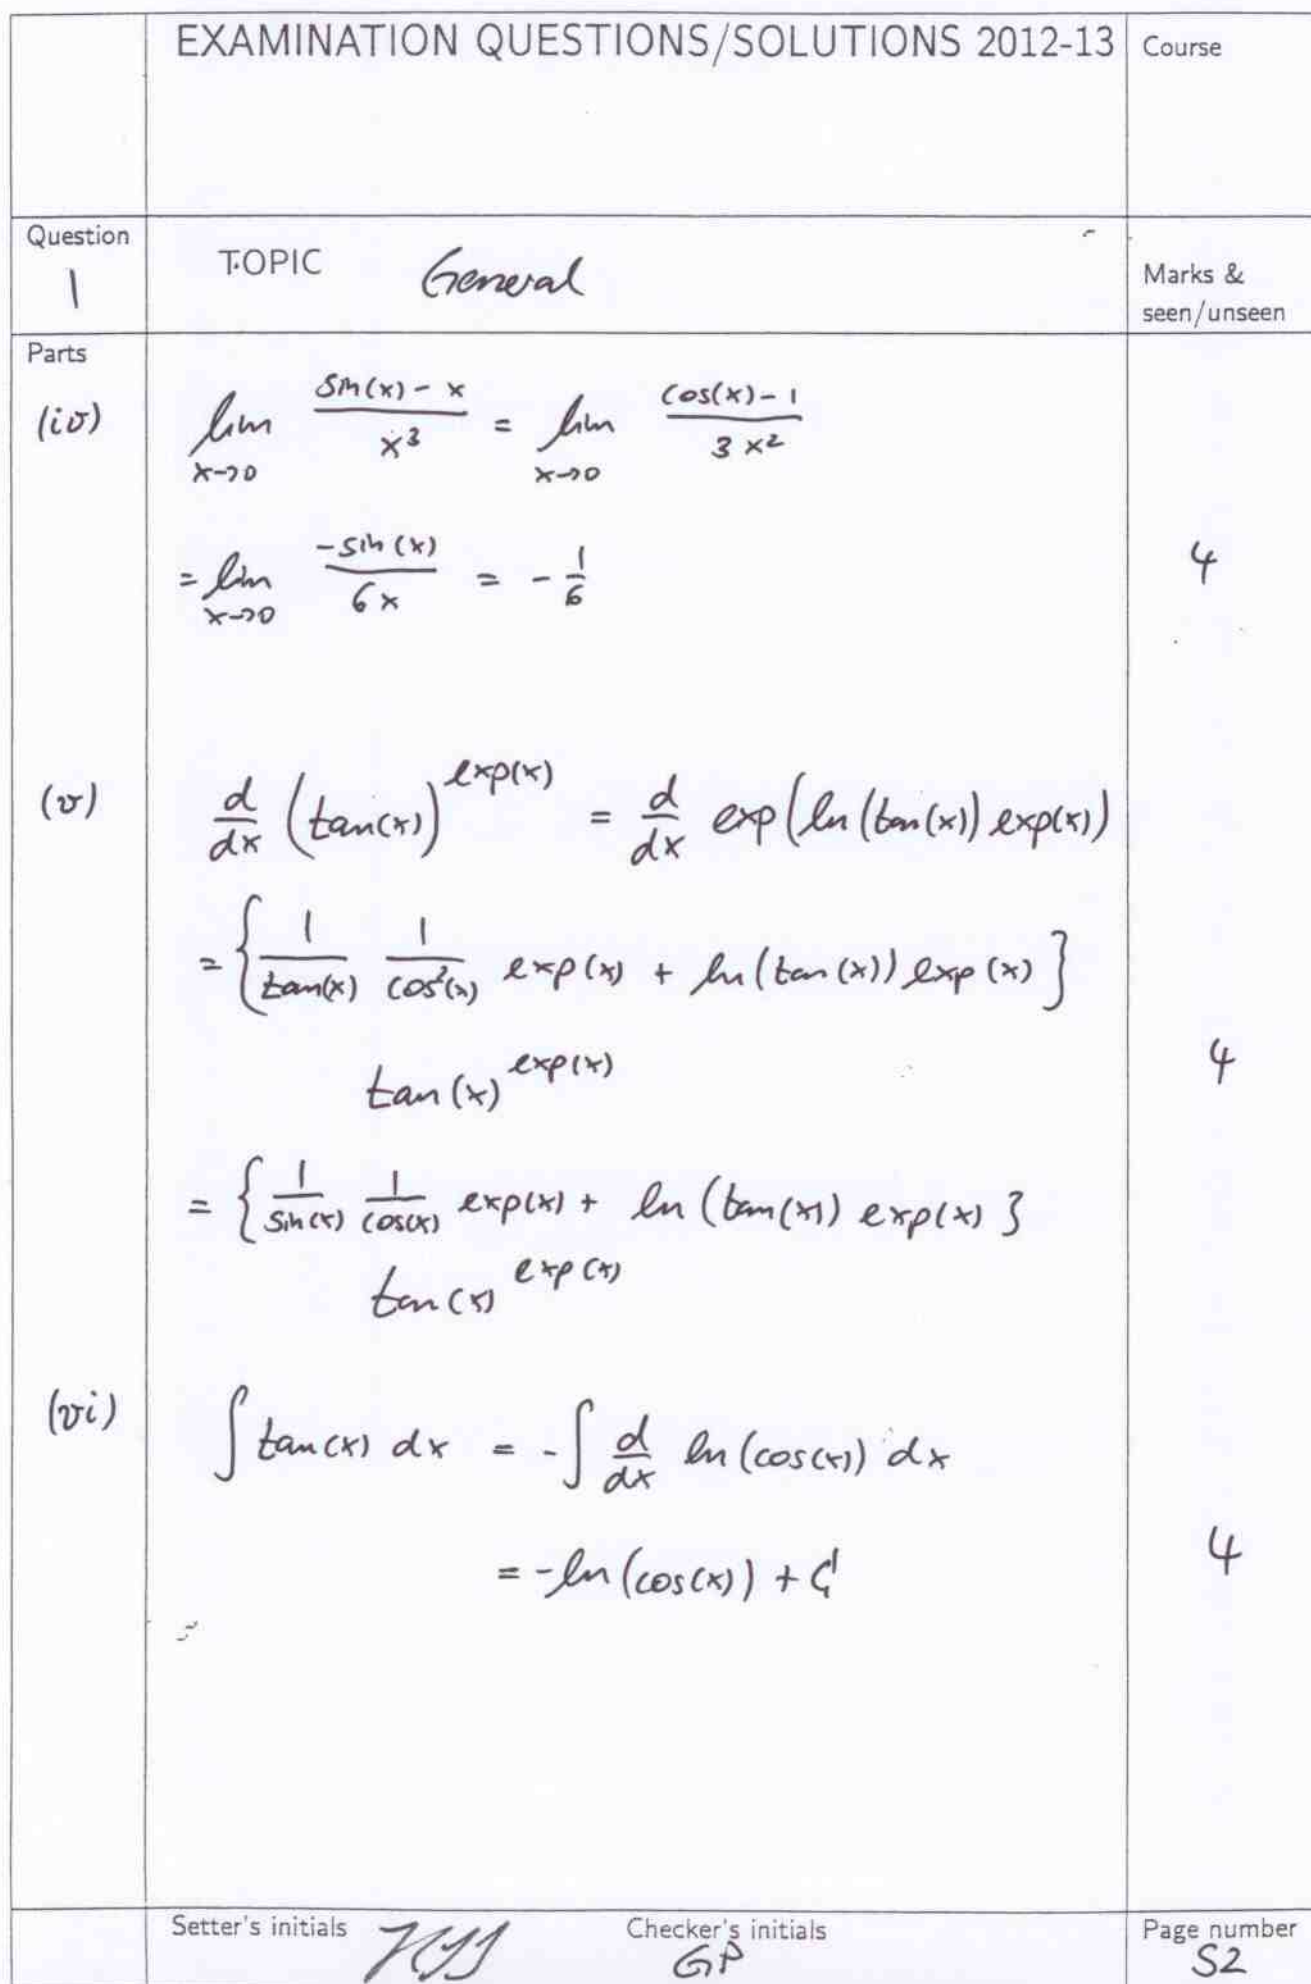 EXAMINATION QUESTIONS/SOLUTIONS 2012-13
Course
Question
1
TOPIC General
Marks & seen/unseen
Parts
(iv) lim_{x→0} (sin(x) - x)/x^3 = lim_{x→0} (cos(x) - 1)/(3x^2)
= lim_{x→0} (-sin(x))/(6x) = -1/6
4
(v) d/dx (tan(x))^{exp(x)} = d/dx exp(ln(tan(x)) exp(x))
= {1/tan(x) 1/cos²(x) exp(x) + ln(tan(x)) exp(x)}
tan(x)^{exp(x)}
4
= {1/sin(x) 1/cos(x) exp(x) + ln(tan(x)) exp(x)}
tan(x)^{exp(x)}
(vi) ∫ tan(x) dx = -∫ d/dx ln(cos(x)) dx
= -ln(cos(x)) + C
4
Setter's initials
Checker's initials
GP
Page number
S2